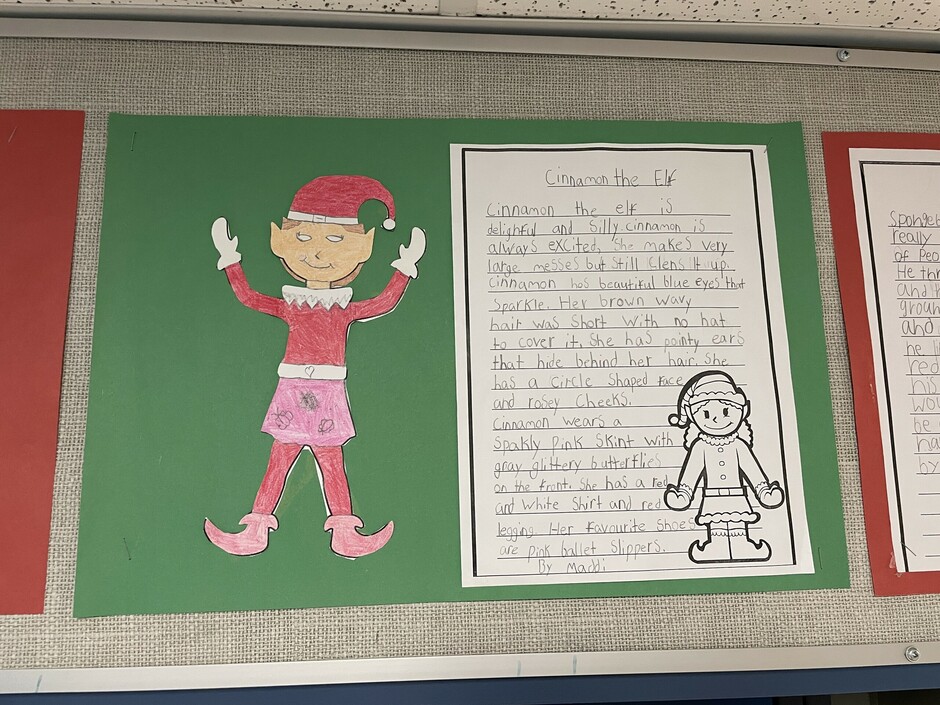 Cinnamon the Elf
Cinnamon the elf is
delighful and silly. cinnamon is
always excited. She makes very
large messes but still Clens it up.
Cinnamon has beautiful blue eyes that
sparkle. Her brown wavy
hair was short with no hat
to cover it. She has pointy ears
that hide behind her hair. She
has a circle shaped face
and rosey cheeks.
Cinnamon wears a
spakly pink skint with
gray glittery butterflies
on the front. She has a red
and white shirt and red
legging. Her favourite shoes
are pink ballet slippers.
By Maddi
Spongeb
really
of Peo
He thr
and
groun
and
he
red
his
wou
be
ha
by